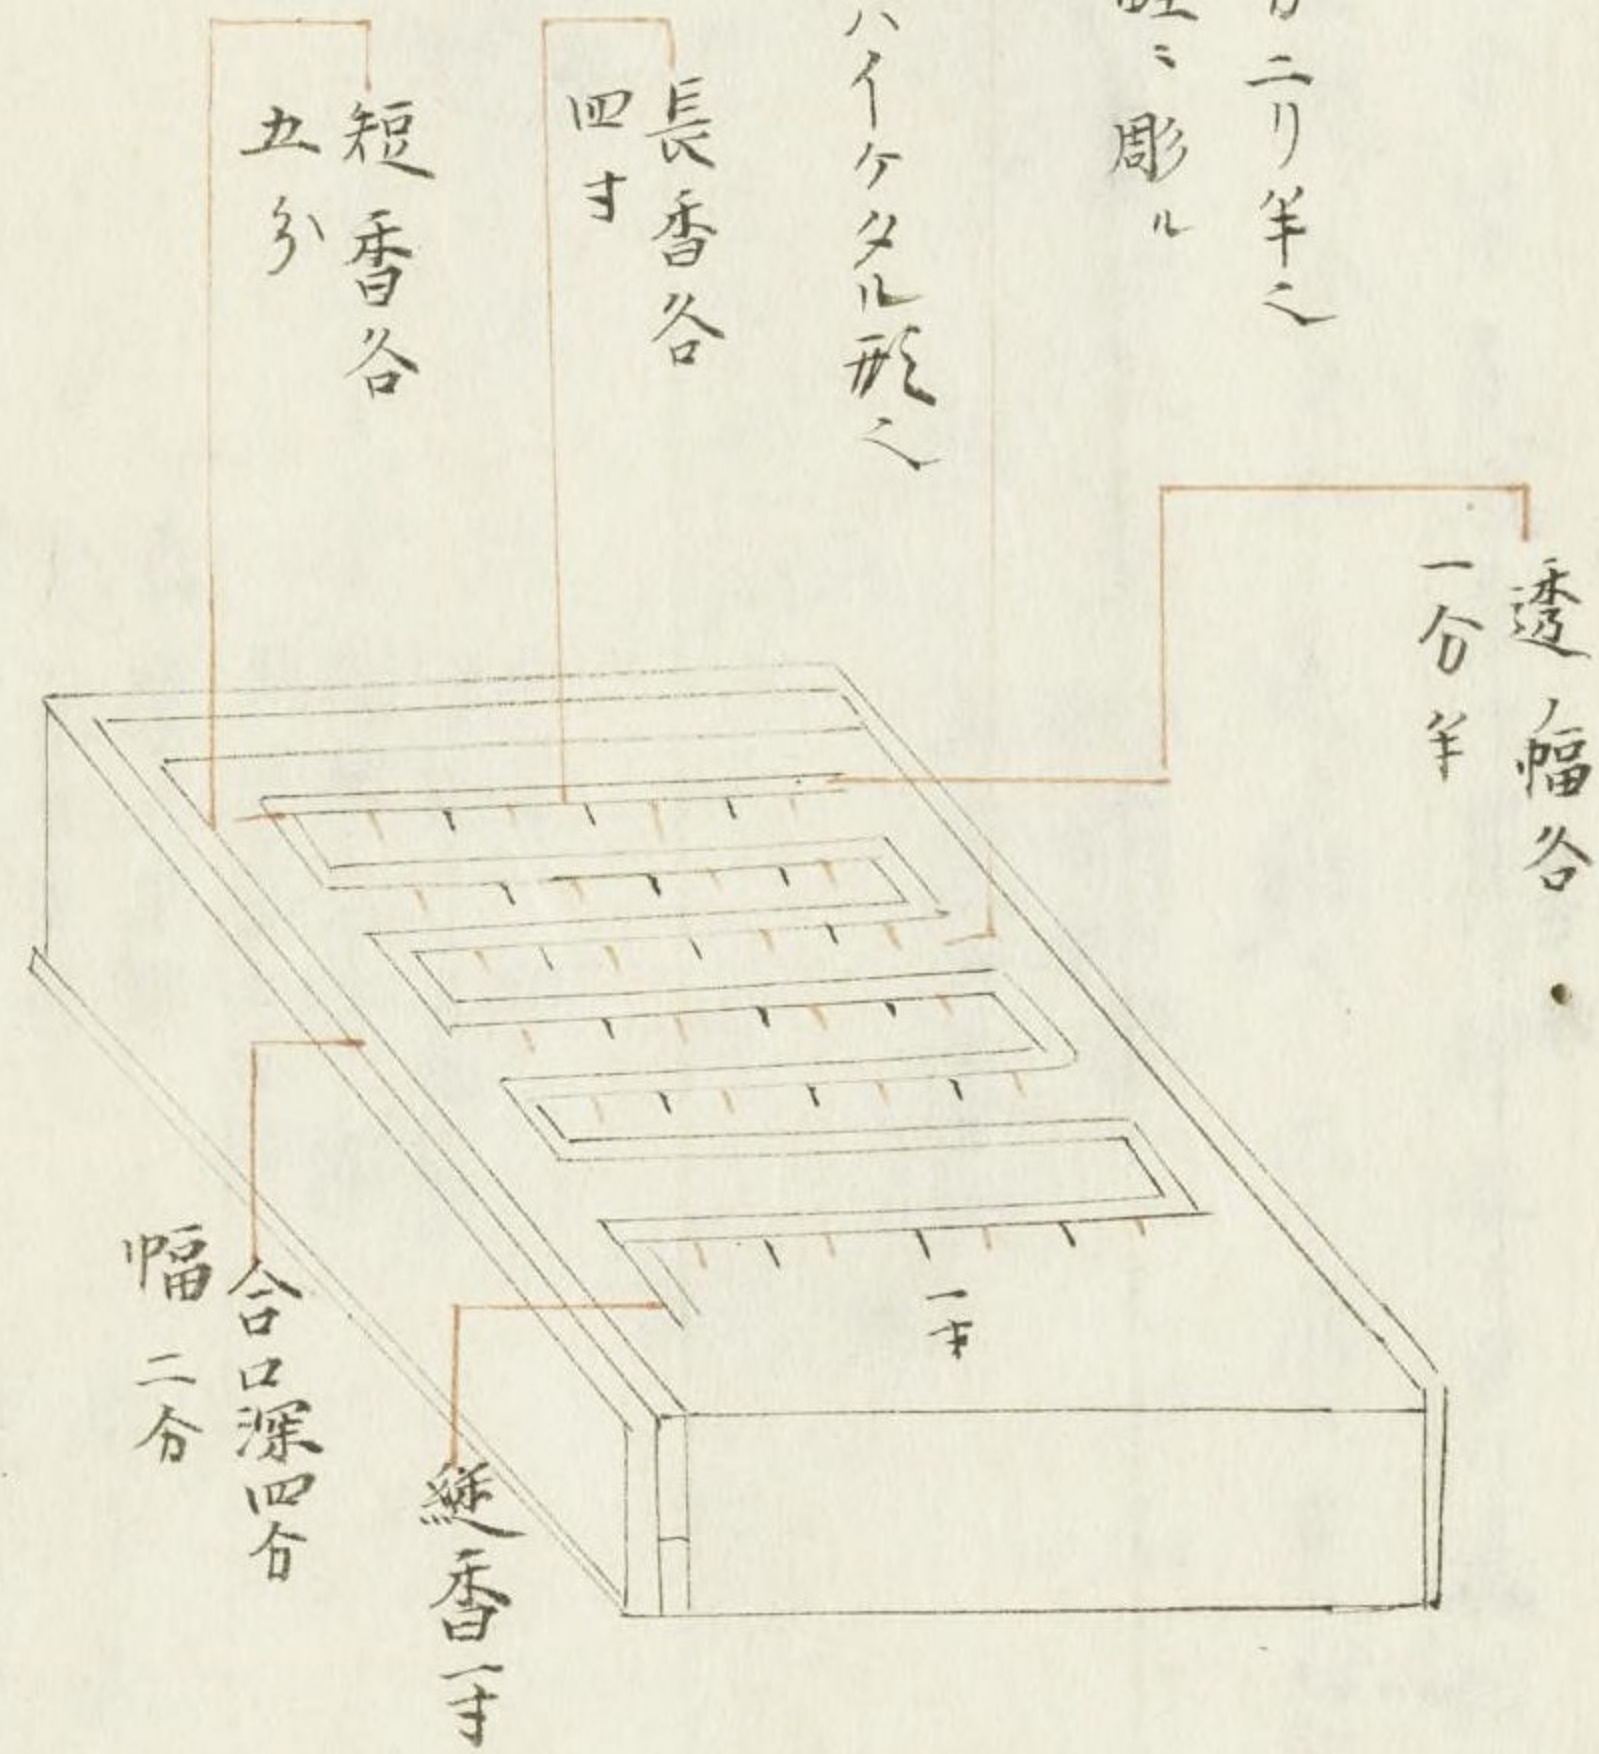 透ノ幅各
一分半
二リ半之
ニ彫ル
ハイケタル形之
長香各
四寸
短香各
五分
一寸
合口深四分
幅二分
縦香一寸